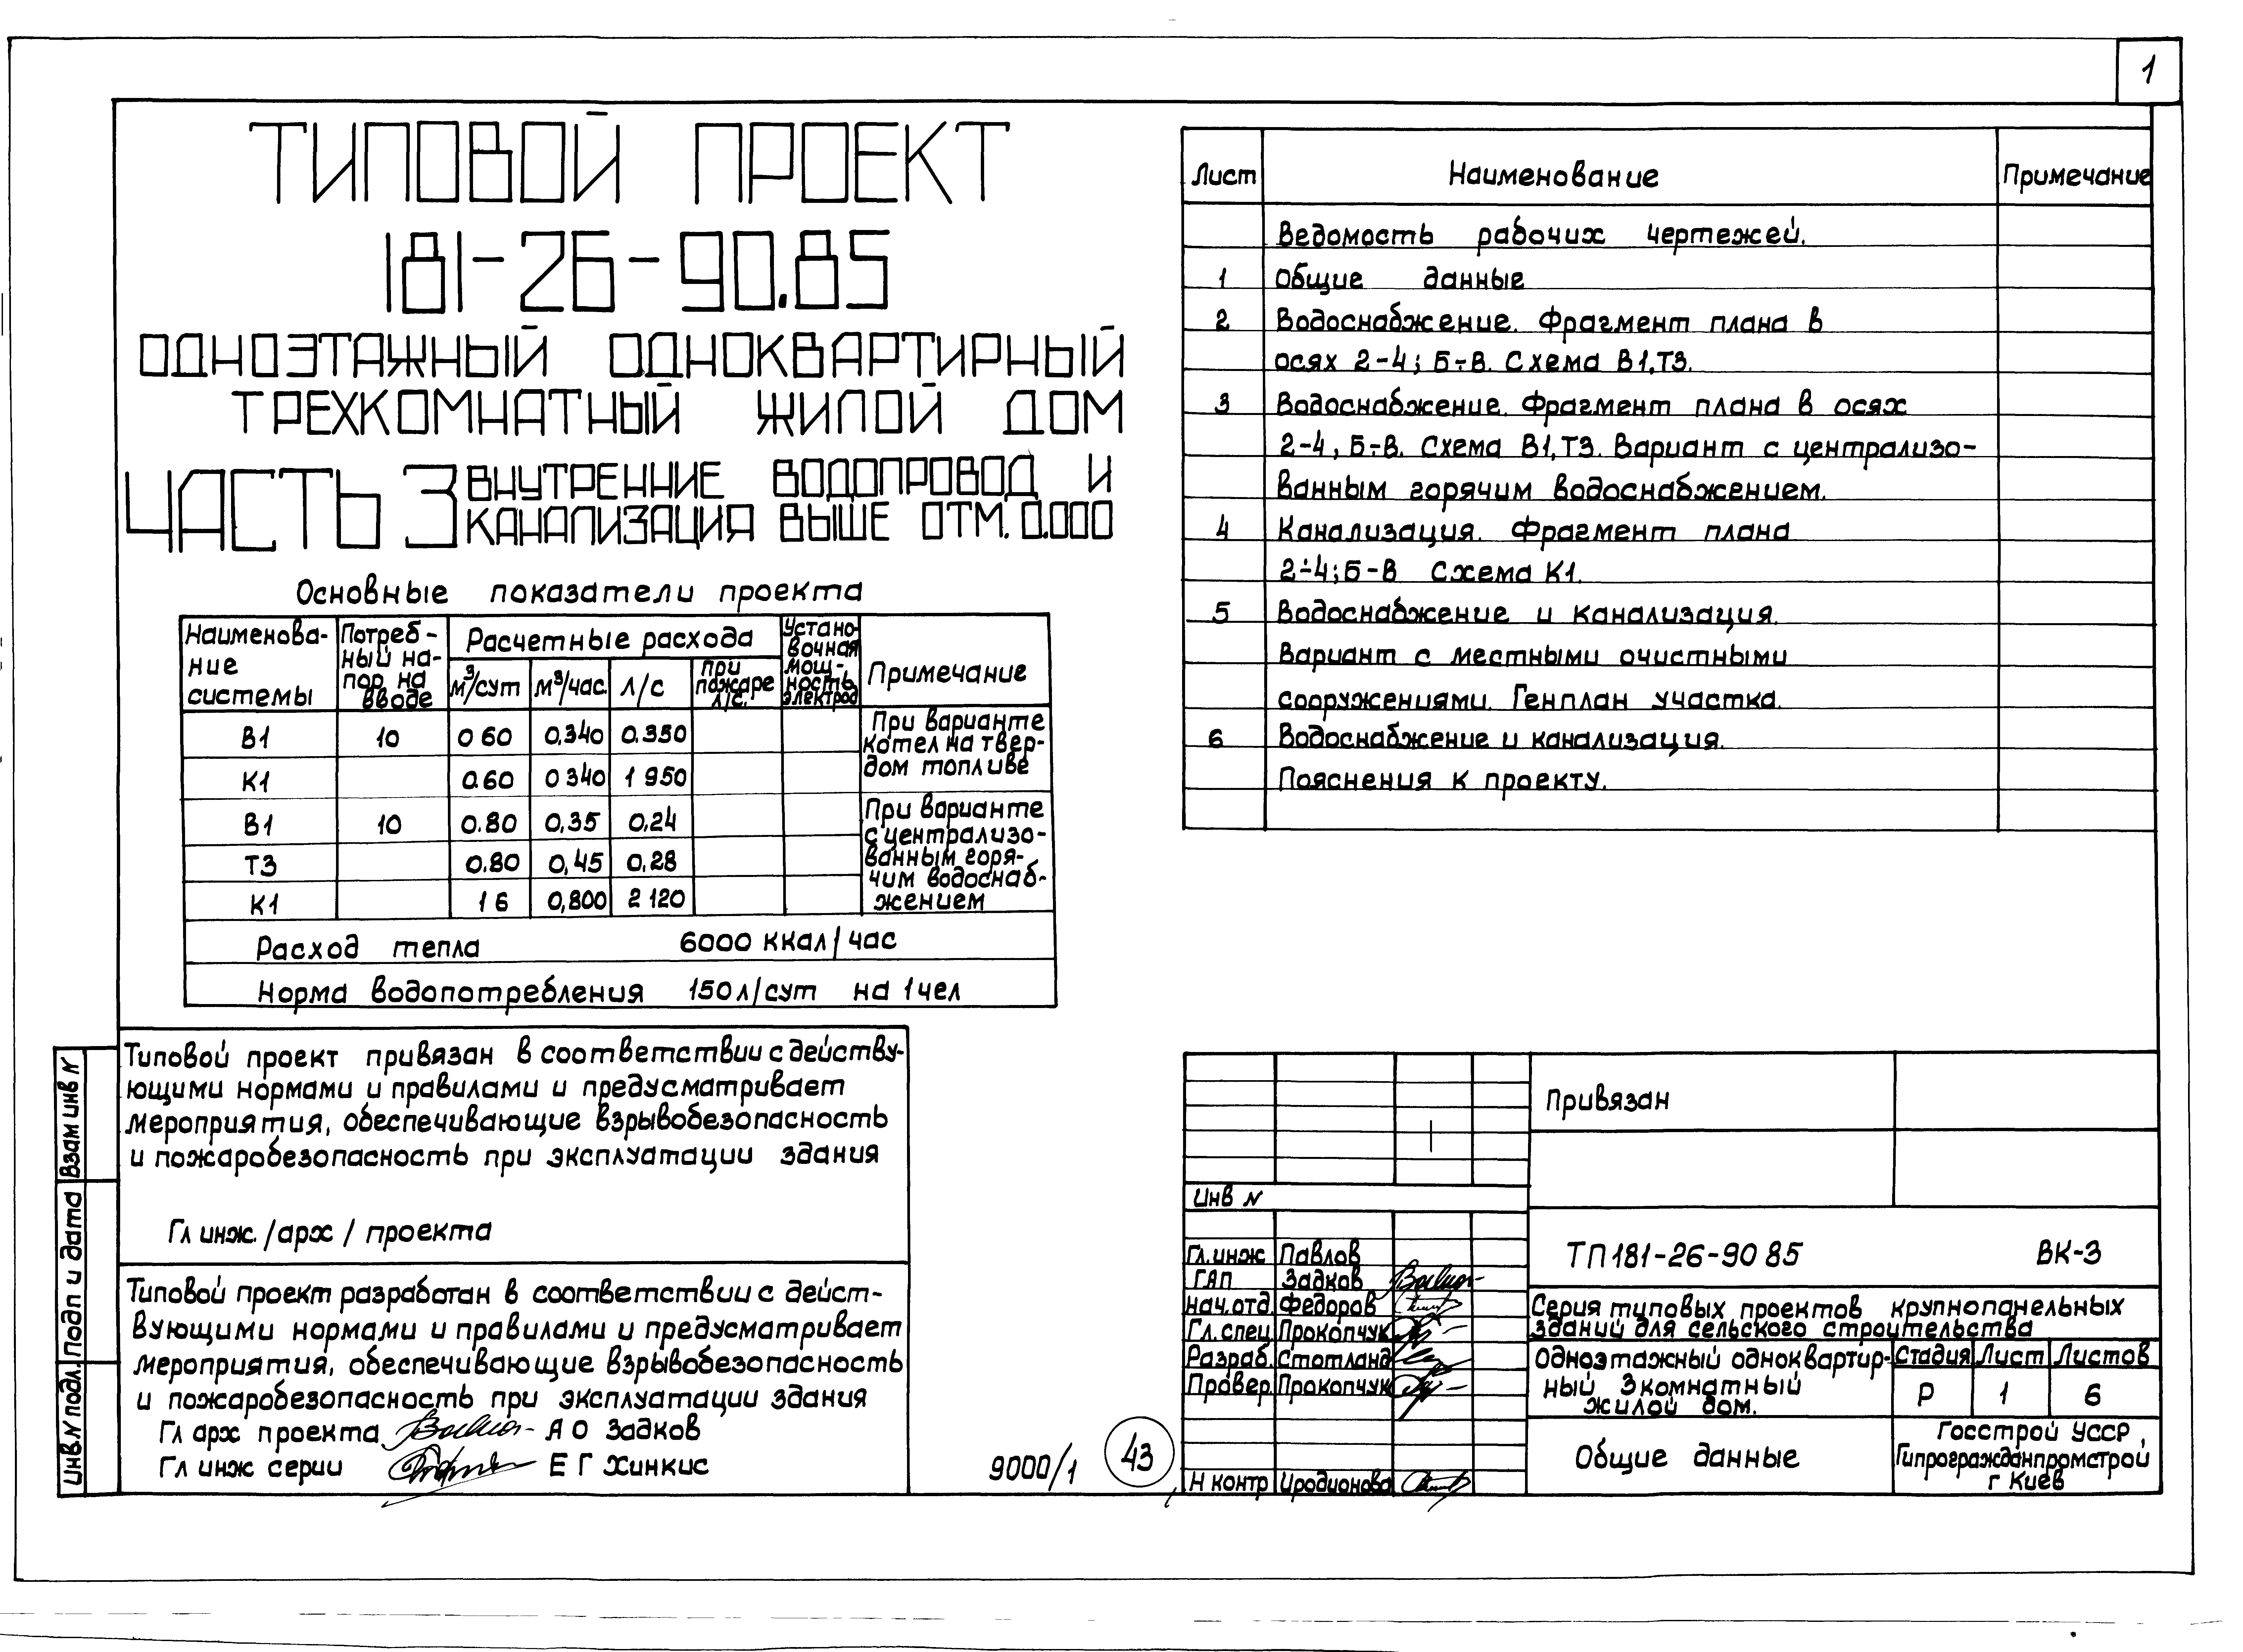 1
ТИПОВОЙ ПРОЕКТ
181-26-90.85
ОДНОЭТАЖНЫЙ ОДНОКВАРТИРНЫЙ
ТРЕХКОМНАТНЫЙ ЖИЛОЙ ДОМ
ЧАСТЬ 3 ВНУТРЕННИЕ ВОДОПРОВОД И
КАНАЛИЗАЦИЯ ВЫШЕ ОТМ. 0.000
Основные показатели проекта
Наименова-
ние
системы
Потреб-
ный на-
пор на
вводе
Расчетные расхода
м³/сут м³/час. л/с
при
пожаре
л/с.
Устано-
вочная
мощ-
ность
электрод
Примечание
В1 10 0 60 0,340 0.350
К1 0.60 0 340 1 950
При варианте
котел на твер-
дом топливе
В1 10 0.80 0,35 0,24
Т3 0.80 0,45 0,28
К1 1 6 0,800 2 120
При варианте
с централизо-
ванным горя-
чим водоснаб-
жением
Расход тепла 6000 ккал/час
Норма водопотребления 150 л/сут на 1 чел
Типовой проект привязан в соответствии с действу-
ющими нормами и правилами и предусматривает
мероприятия, обеспечивающие взрывобезопасность
и пожаробезопасность при эксплуатации здания
Гл инж. /арх / проекта
Типовой проект разработан в соответствии с дейст-
вующими нормами и правилами и предусматривает
мероприятия, обеспечивающие взрывобезопасность
и пожаробезопасность при эксплуатации здания
Гл арх проекта А О Задков
Гл инж серии Е Г Хинкис
Взам инв N
Подп и дата
Инв. N подл.
9000/1
43
Лист Наименование Примечание
Ведомость рабочих чертежей.
1 Общие данные
2 Водоснабжение. Фрагмент плана в
осях 2-4; Б÷В. Схема В1,Т3.
3 Водоснабжение. Фрагмент плана в осях
2-4, Б÷В. Схема В1,Т3. Вариант с централизо-
ванным горячим водоснабжением.
4 Канализация. Фрагмент плана
2÷4; Б-В Схема К1.
5 Водоснабжение и канализация.
Вариант с местными очистными
сооружениями. Генплан участка.
6 Водоснабжение и канализация.
Пояснения к проекту.
Привязан
Инв N
Гл.инж Павлов
ГАП Задков
Нач.отд Федоров
Гл.спец. Прокопчук
Разраб. Стотланд
Провер. Прокопчук
Н контр Иродионова
ТП 181-26-90 85 ВК-3
Серия типовых проектов крупнопанельных
зданий для сельского строительства
Одноэтажный одноквартир-
ный 3комнатный
жилой дом.
Стадия Лист Листов
Р 1 6
Общие данные
Госстрой УССР,
Гипрогражданпромстрой
г Киев